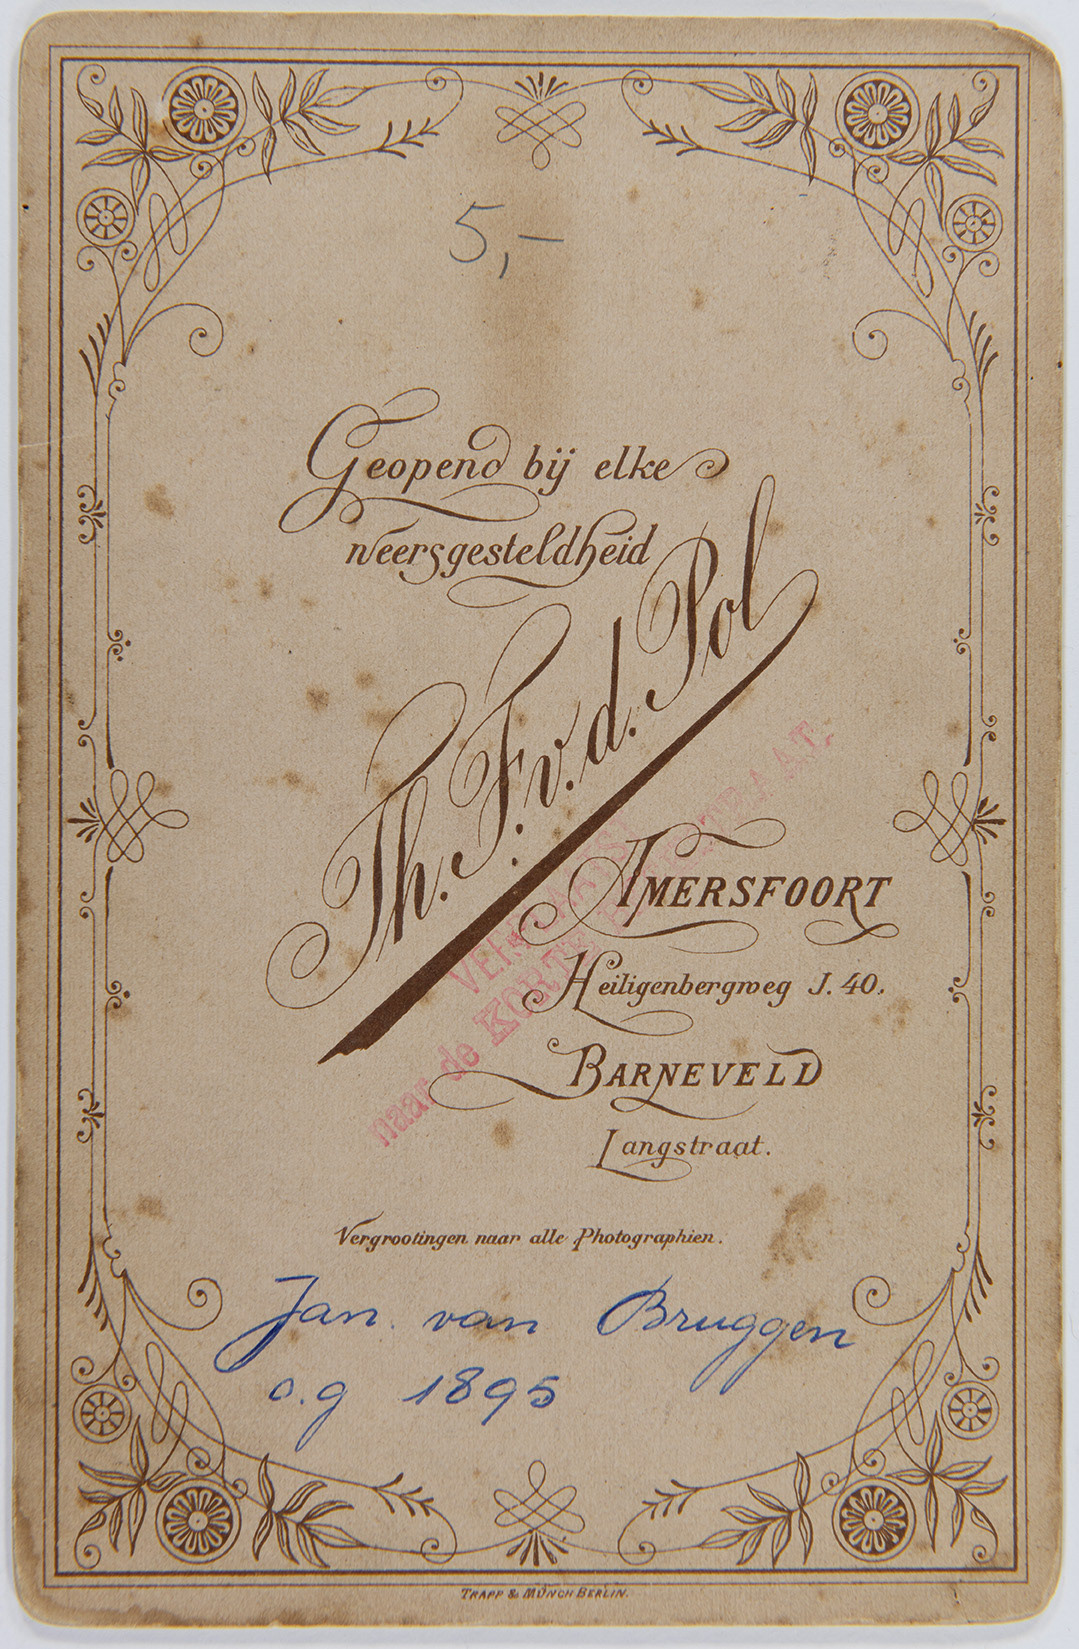 5,-
Geopend bij elke
weersgesteldheid
Th. F. v. d. Pol
AMERSFOORT
Heiligenbergweg J. 40.
BARNEVELD
Langstraat.
VERPLAATST
naar de KORTE BERGSTRAAT.
Vergrootingen naar alle Photographien.
Jan van Bruggen
o.g 1895
TRAPP & MÜNCH BERLIN.